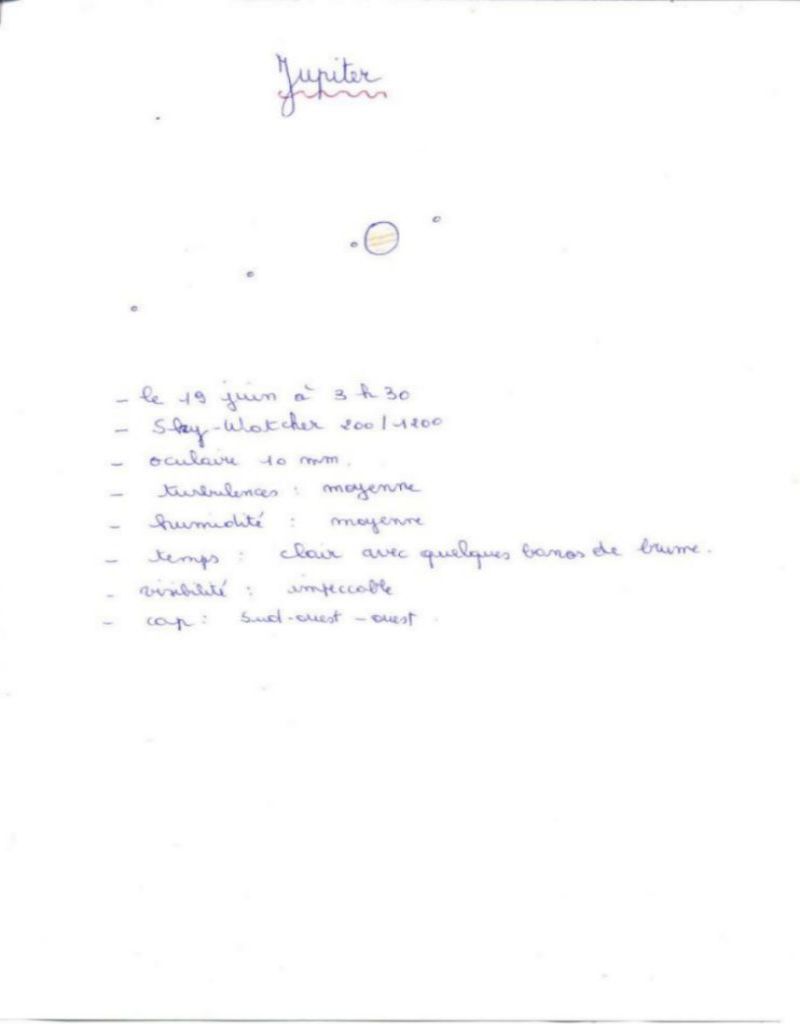 Jupiter
- le 19 juin à 3 h 30
- Sky-Watcher 200/1200
- oculaire 10 mm.
- turbulences : moyenne
- humidité : moyenne
- temps : clair avec quelques bancs de brume.
- visibilité : impeccable
- cap : sud-ouest - ouest.